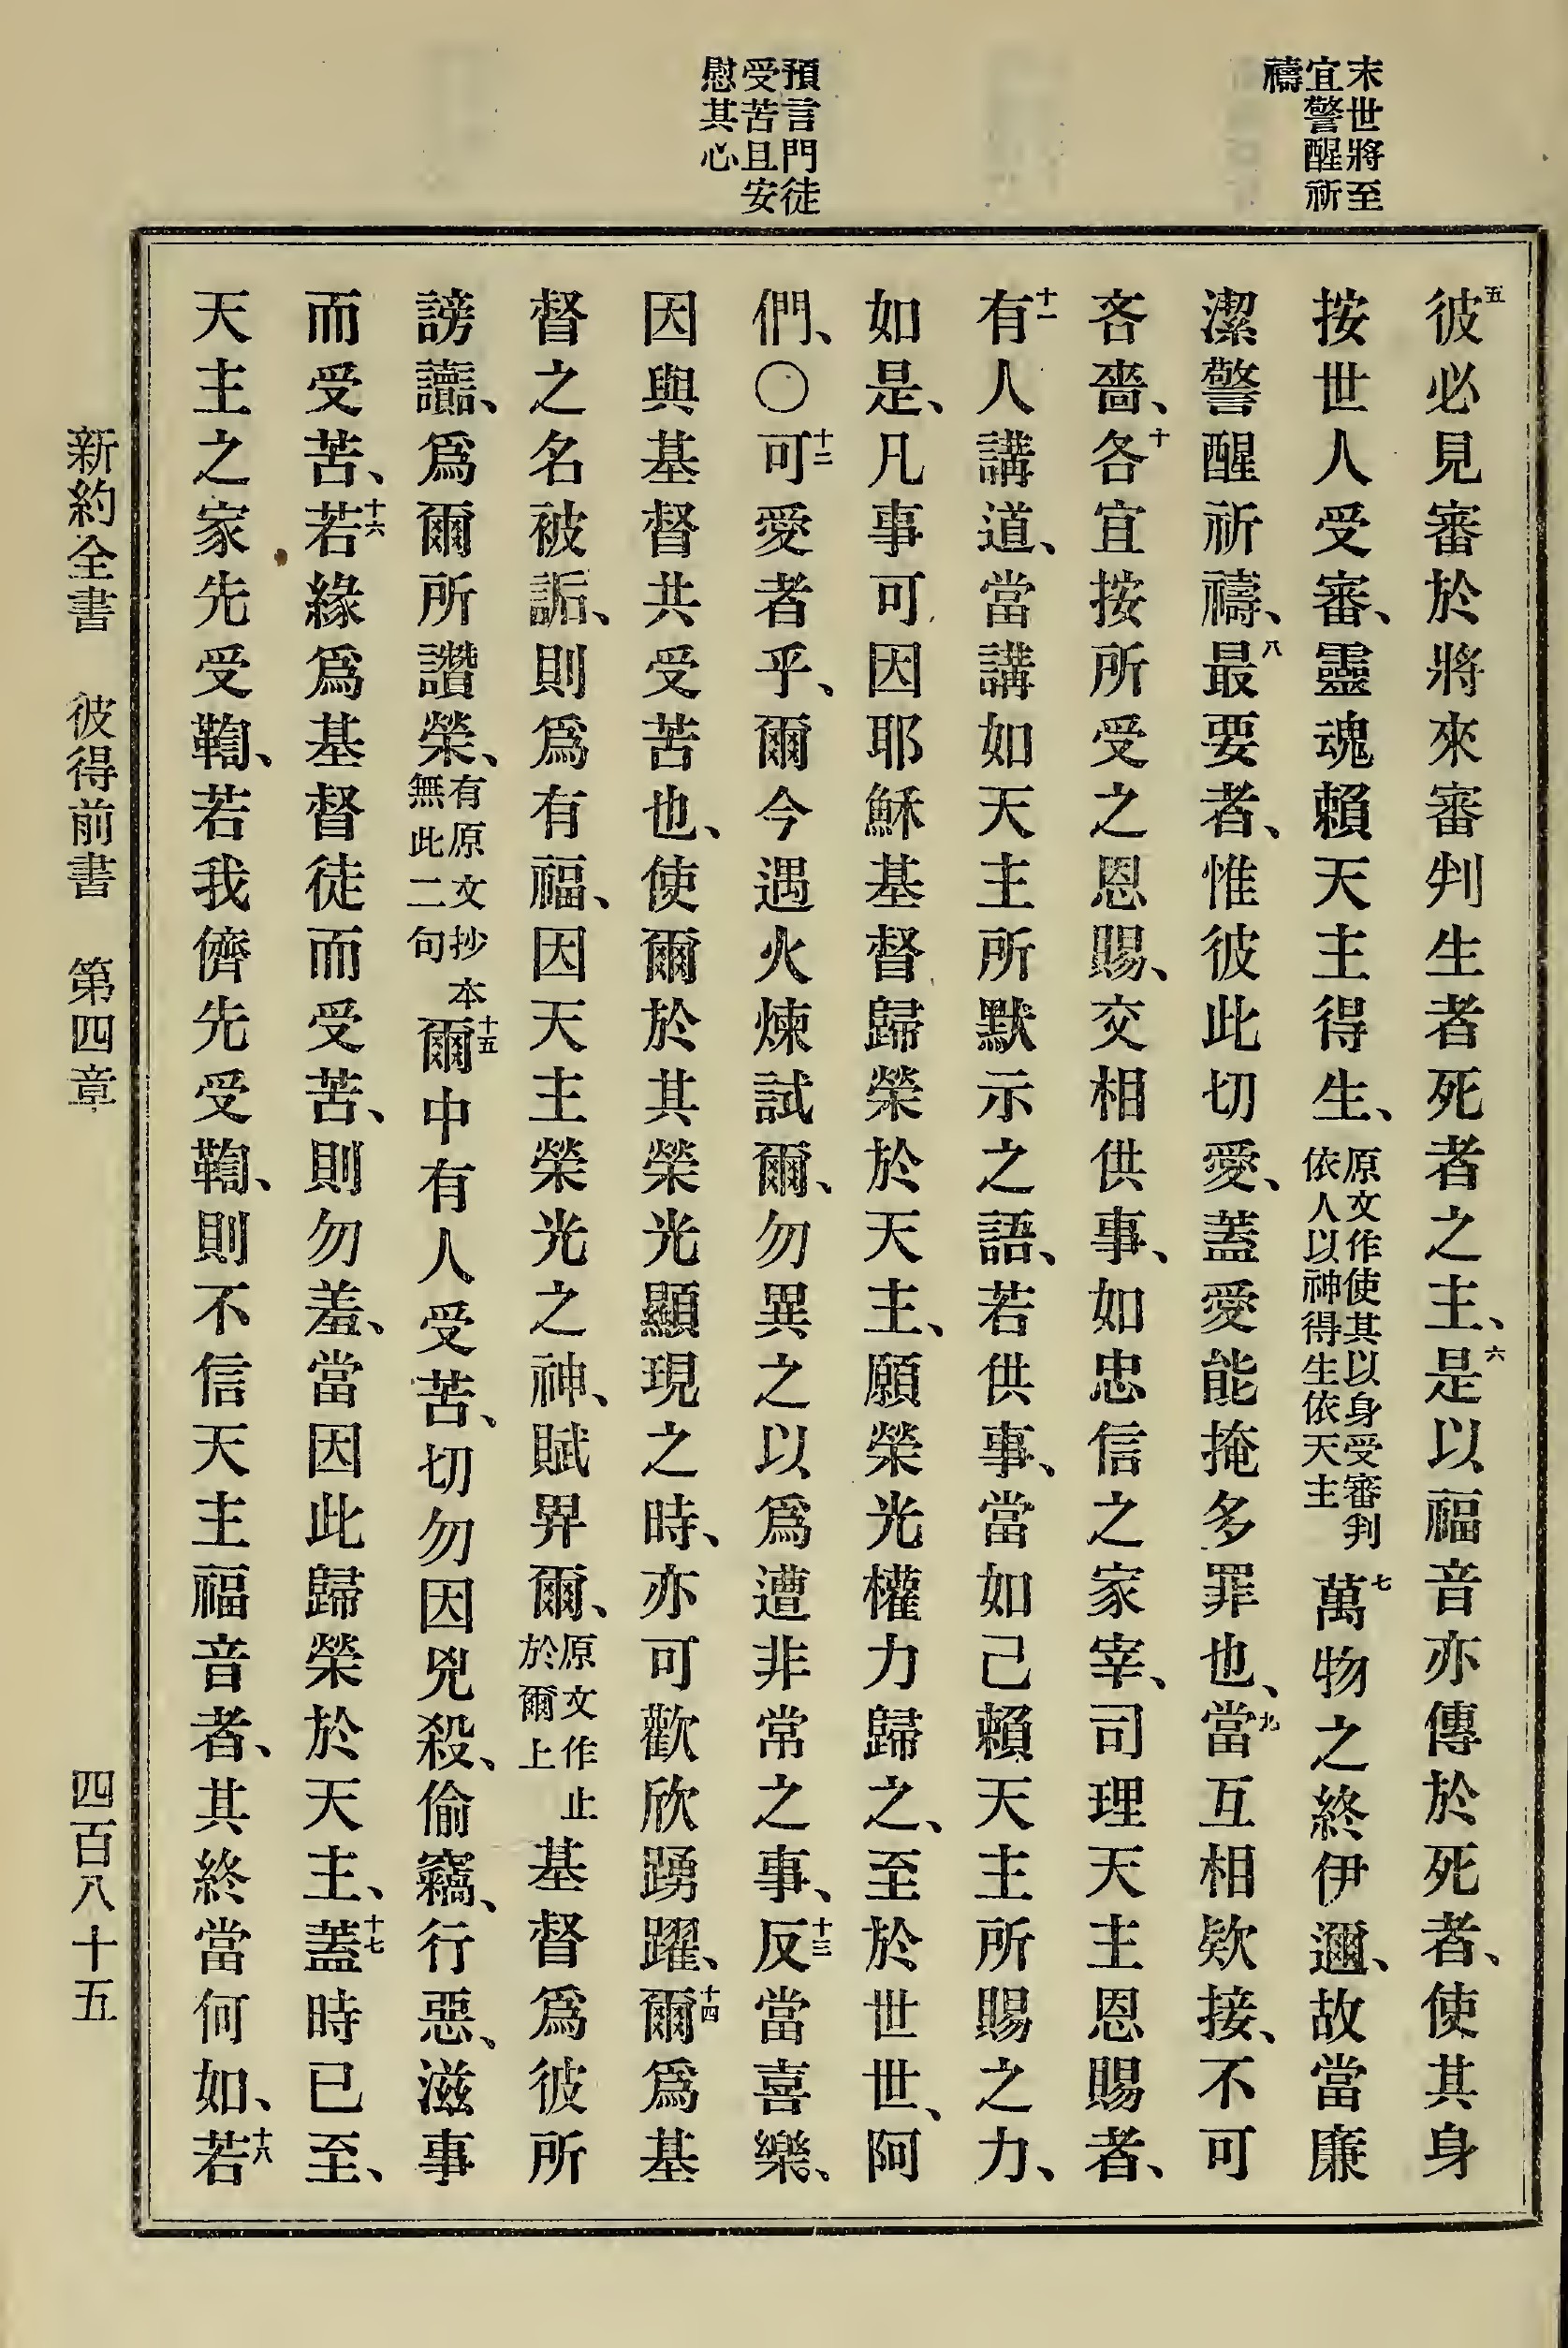 末世將至
宜警醒祈
禱
預言門徒
受苦且安
慰其心
五彼必見審於將來審判生者死者之主、六是以福音亦傳於死者、使其身
按世人受審、靈魂賴天主得生、原文作使其以身受審判依人以神得生依天主七萬物之終伊邇、故當廉
潔警醒祈禱、八最要者、惟彼此切愛、蓋愛能掩多罪也、九當互相欵接、不可
吝嗇、十各宜按所受之恩賜、交相供事、如忠信之家宰、司理天主恩賜者、
十一有人講道、當講如天主所默示之語、若供事、當如己賴天主所賜之力、
如是、凡事可因耶穌基督歸榮於天主、願榮光權力歸之、至於世世、阿
們、〇十二可愛者乎、爾今遇火煉試爾、勿異之以爲遭非常之事、十三反當喜樂、
因與基督共受苦也、使爾於其榮光顯現之時、亦可歡欣踴躍、十四爾爲基
督之名被詬、則爲有福、因天主榮光之神、賦畀爾、原文作止於爾上基督爲彼所
謗讟、爲爾所讚榮、有原文抄本無此二句十五爾中有人受苦、切勿因兇殺、偷竊、行惡、滋事
而受苦、十六若緣爲基督徒而受苦、則勿羞、當因此歸榮於天主、十七蓋時已至、
天主之家先受鞫、若我儕先受鞫、則不信天主福音者、其終當何如、十八若
新約全書 彼得前書 第四章 四百八十五